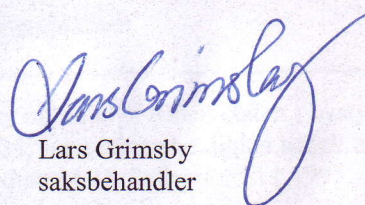 Lars Grimsby
Lars Grimsby
saksbehandler